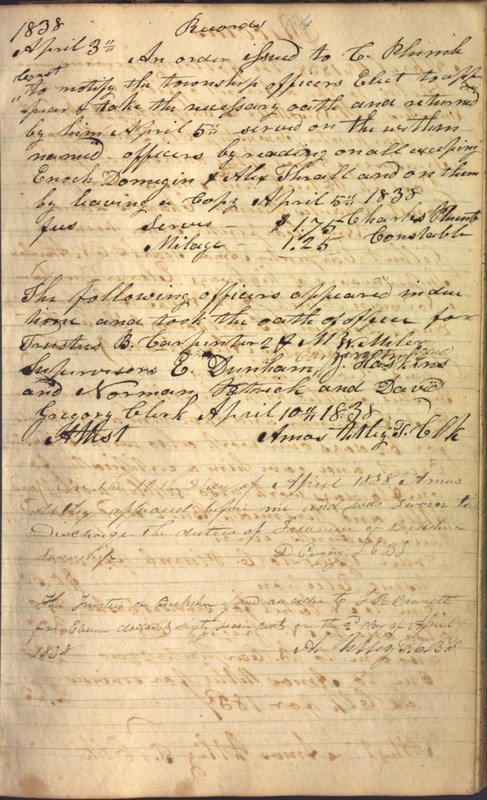 1838 Records
April 3th An order issued to C. Plumb
Const
to notify the township officers Elect to app
"pear & take the necessary oath and returned
by him April 5th served on the within
named officers by reading on all excepting
Enoch Domigin & Alex Thrall and on them
by leaving a Copy April 5th 1838
fees Serves — $1.75 Charles Plumb
Milage — 1.25 Constable
The following officers appeared in due
time and took the oath of office for
Trustees B. Carpenter 2d & M. Miler
Supervisors E. Dunham, J. Haskins
and Norman Patrick and David
Gregory Clerk April 10th 1838
Attest Amos Utley T. Clk
on the 11th Day of April 1838 Amos
Utley appeared before me and was sworn to
Discharge the duties of Treasurer of Berkshire
Township D Gregory
The Trustees of Berkshire paid an order to Bennett
for Eleven dollars & cents on the 2d day of April
1838 A. Utley